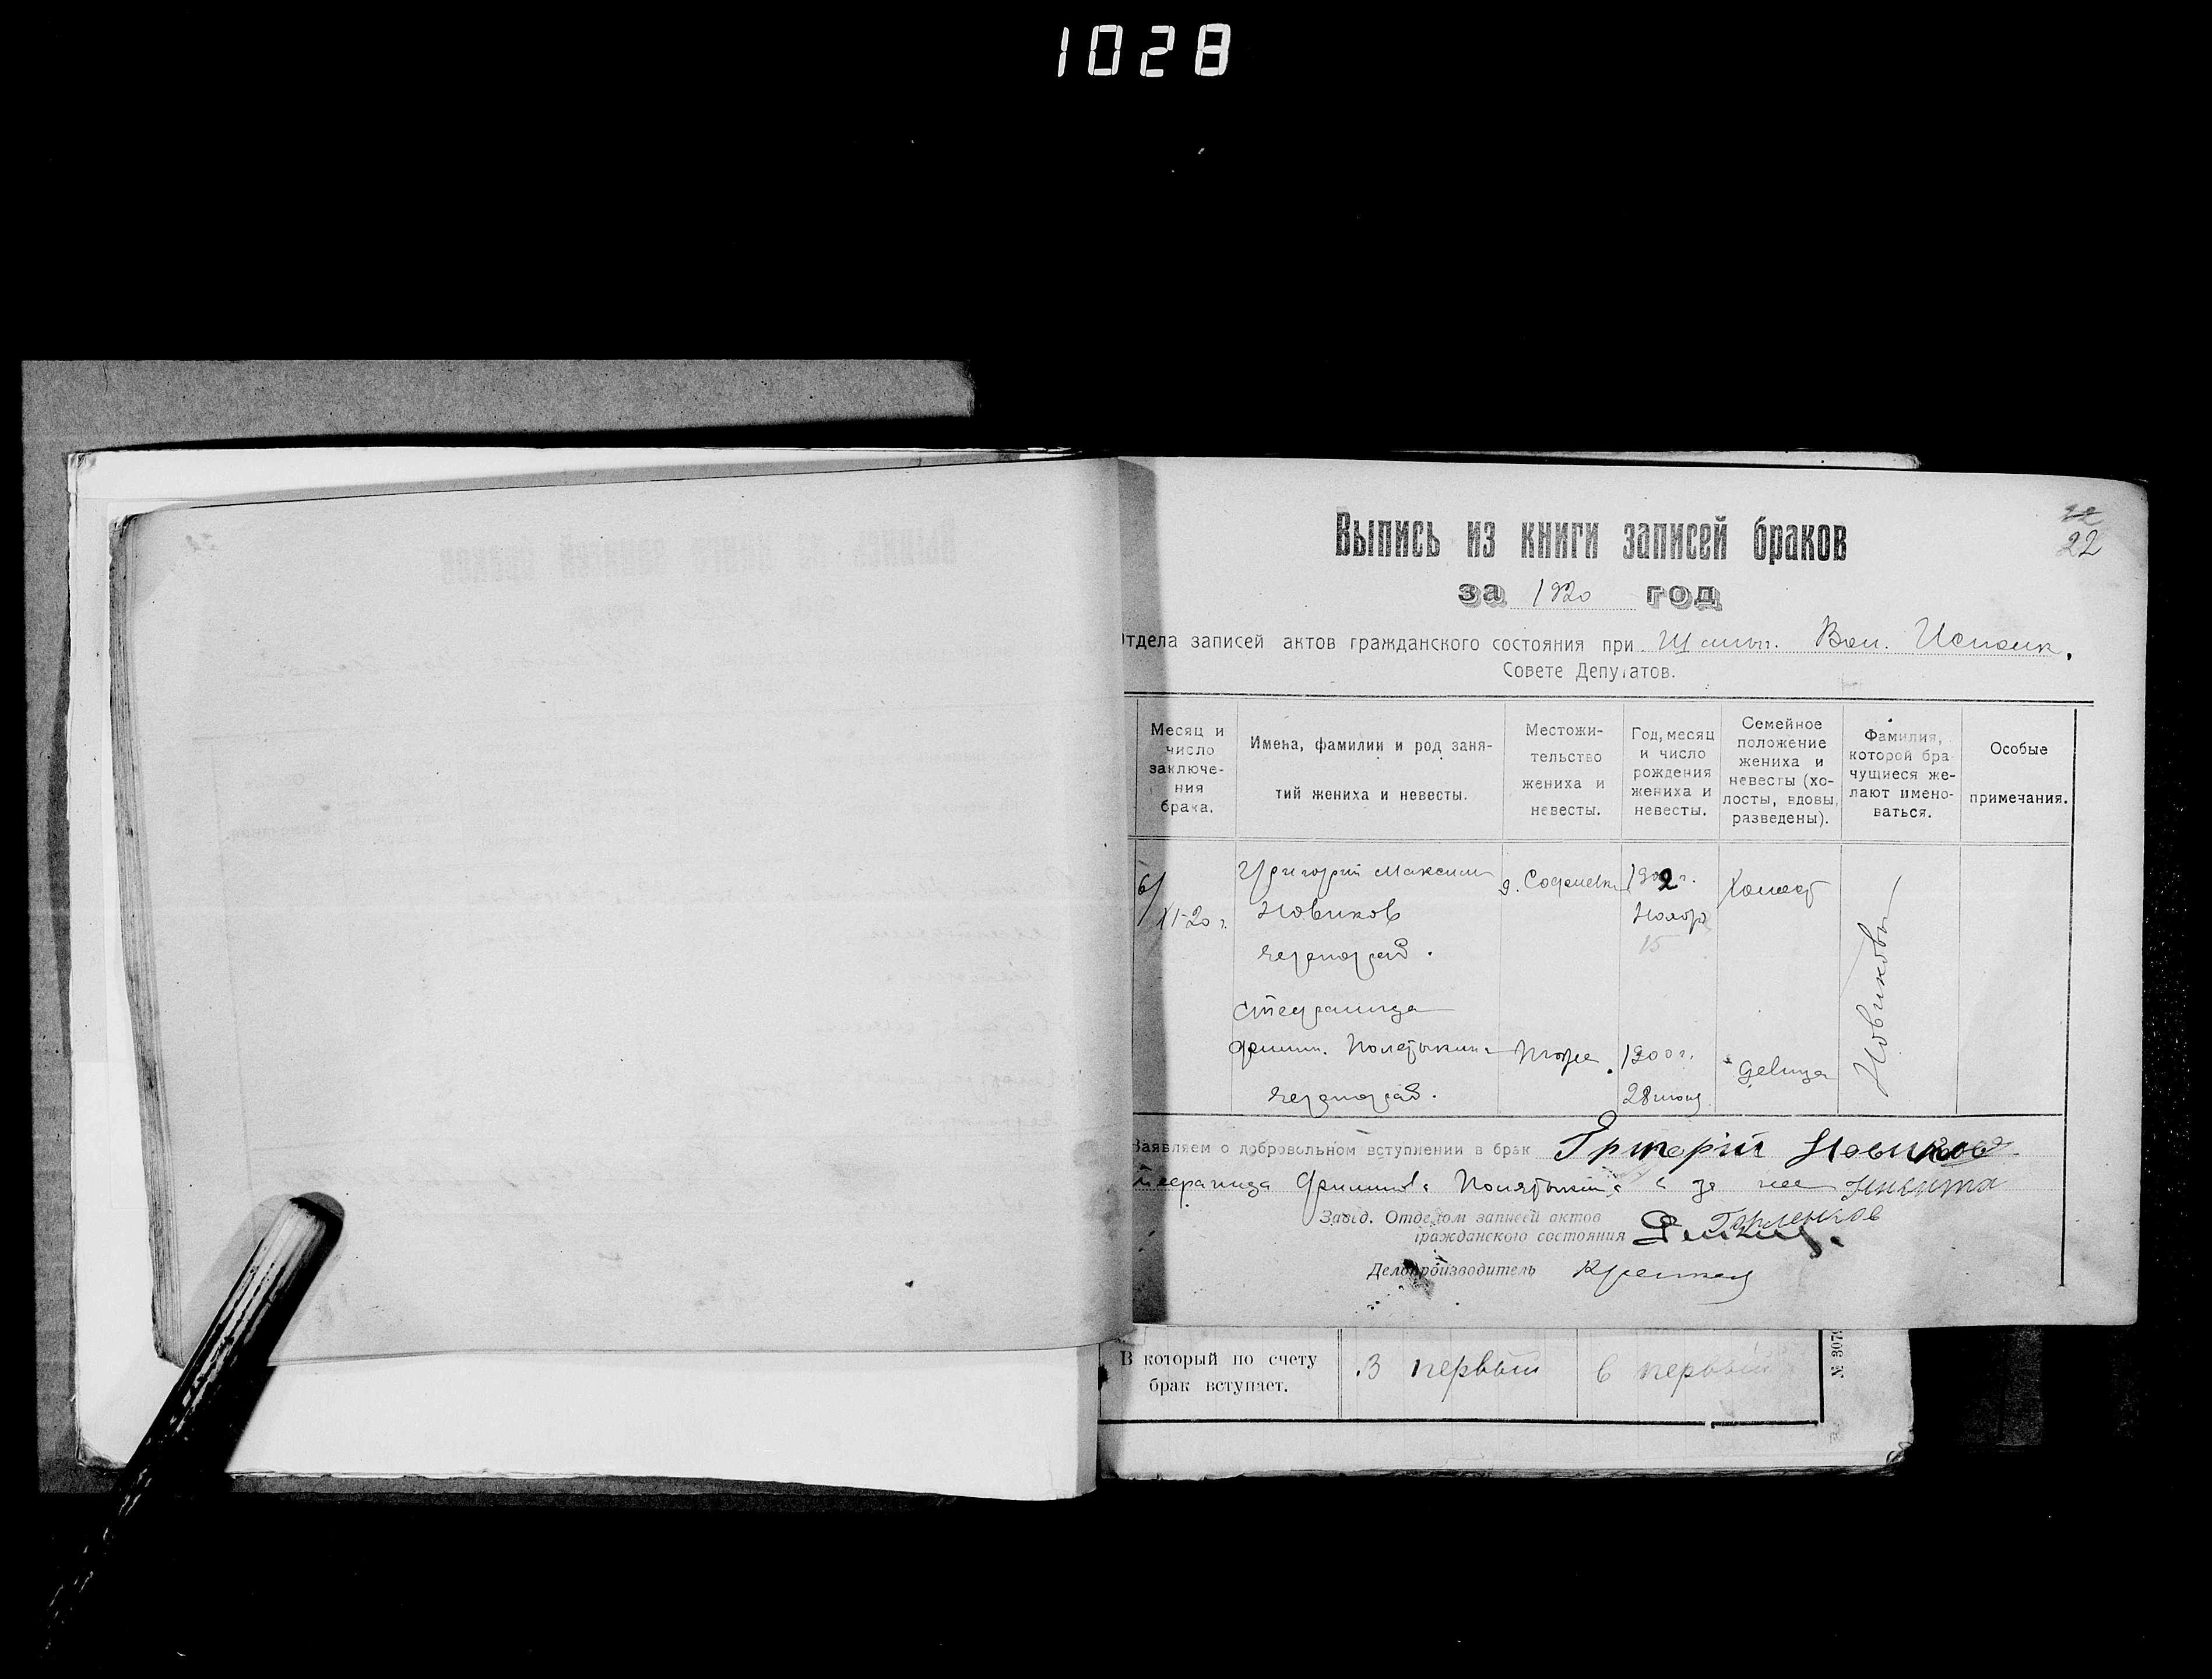 1028
22
22
Выпись из книги записей браков
за 1920 год
Отдела записей актов гражданского состояния при Вол. Исполк.
Совете Депутатов.
Месяц и число заключения брака.
Имена, фамилии и род занятий жениха и невесты.
Местожительство жениха и невесты.
Год, месяц и число рождения жениха и невесты.
Семейное положение жениха и невесты (холосты, вдовы, разведены).
Фамилия, которой брачущиеся желают именоваться.
Особые примечания.
6/XI-20 г.
Григорий Максим
Новиков
хлебороб.
д. Софиевка
1902 г.
Ноябр
15
Холост
Новиковы
Степанида
Филип.
хлебороб.
тоже.
1900 г.
28 июня
девица
Заявляем о добровольном вступлении в брак Григорий Новиков
Степанида Филипова а за нее Никита
Горленков
Завед. Отделом записей актов
гражданского состояния
Делопроизводитель
В который по счету брак вступает.
В первый
в первый
№ 307